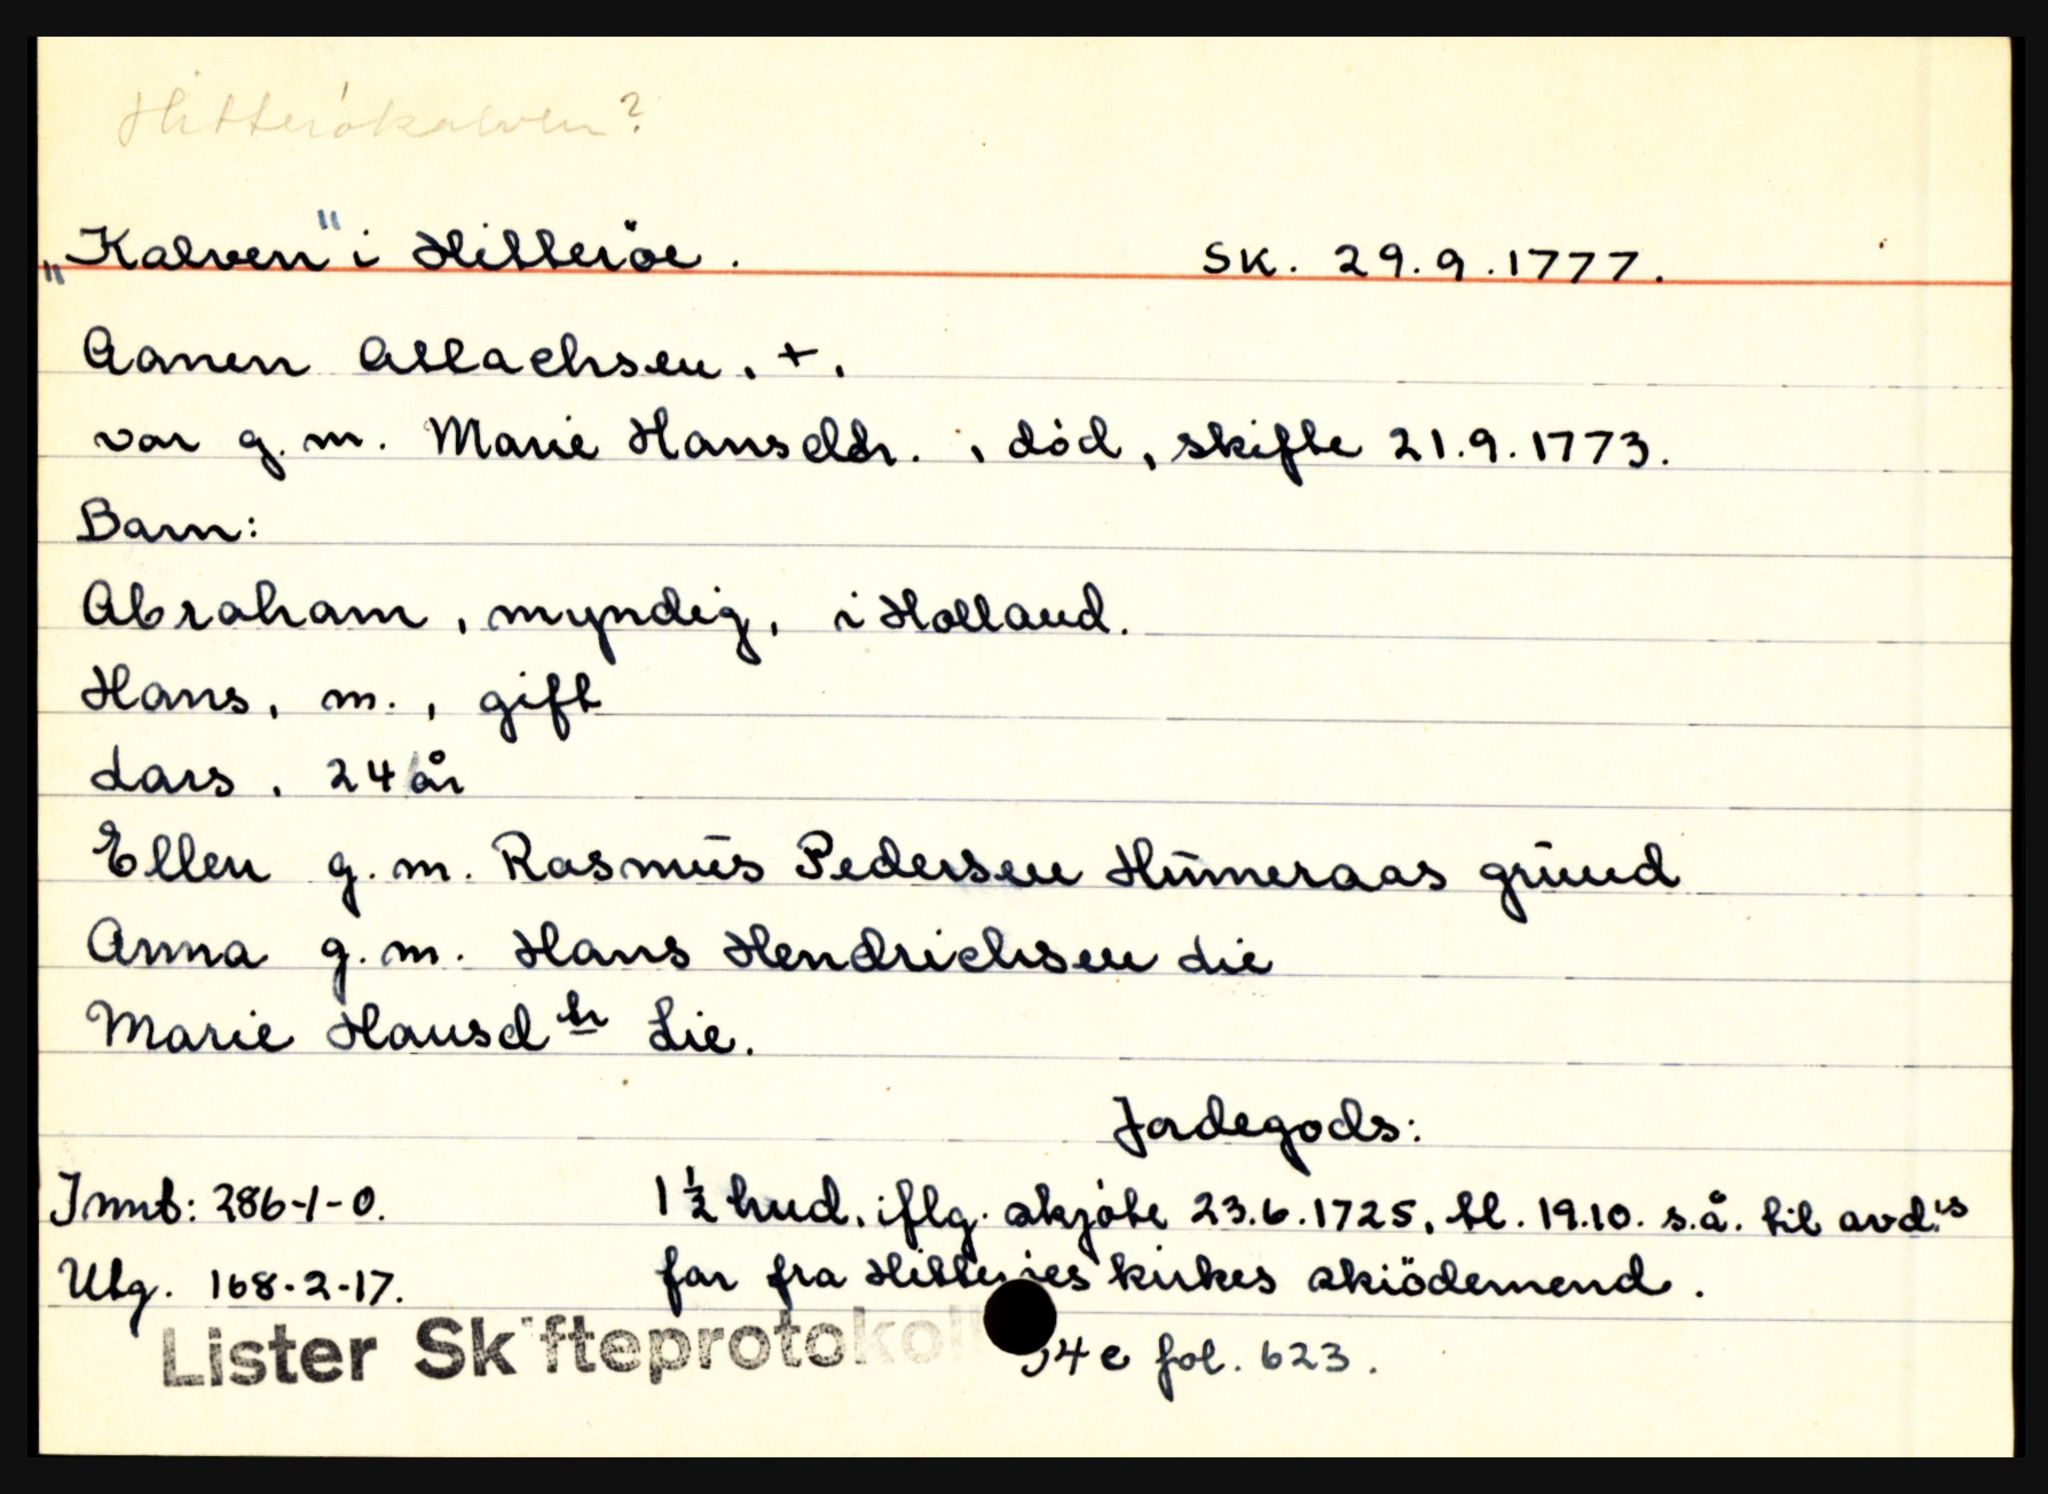 Hitterökalven?
„Kalven" i Hitteröe. SK. 29.9.1777.
Aanen Atlachsen. +.
var g.m. Marie Hansddr., død, skifte 21.9.1773.
Barn:
Abraham, myndig, i Holland.
Hans, m., gift
Lars, 24 år
Ellen g.m. Rasmus Pedersen Humeraas grund
Anna g.m. Hans Hendrichsen Lie
Marie Hansdtr Lie.
Jordegods:
Innt: 286-1-0. 1 1/2 hud, iflg. skjøte 23.6.1725, tl. 19.10. s.å. til avd.'s
Utg. 168-2-17. far fra kirkes skiödemend.
Lister Skifteprotokoll 4 c fol. 623.